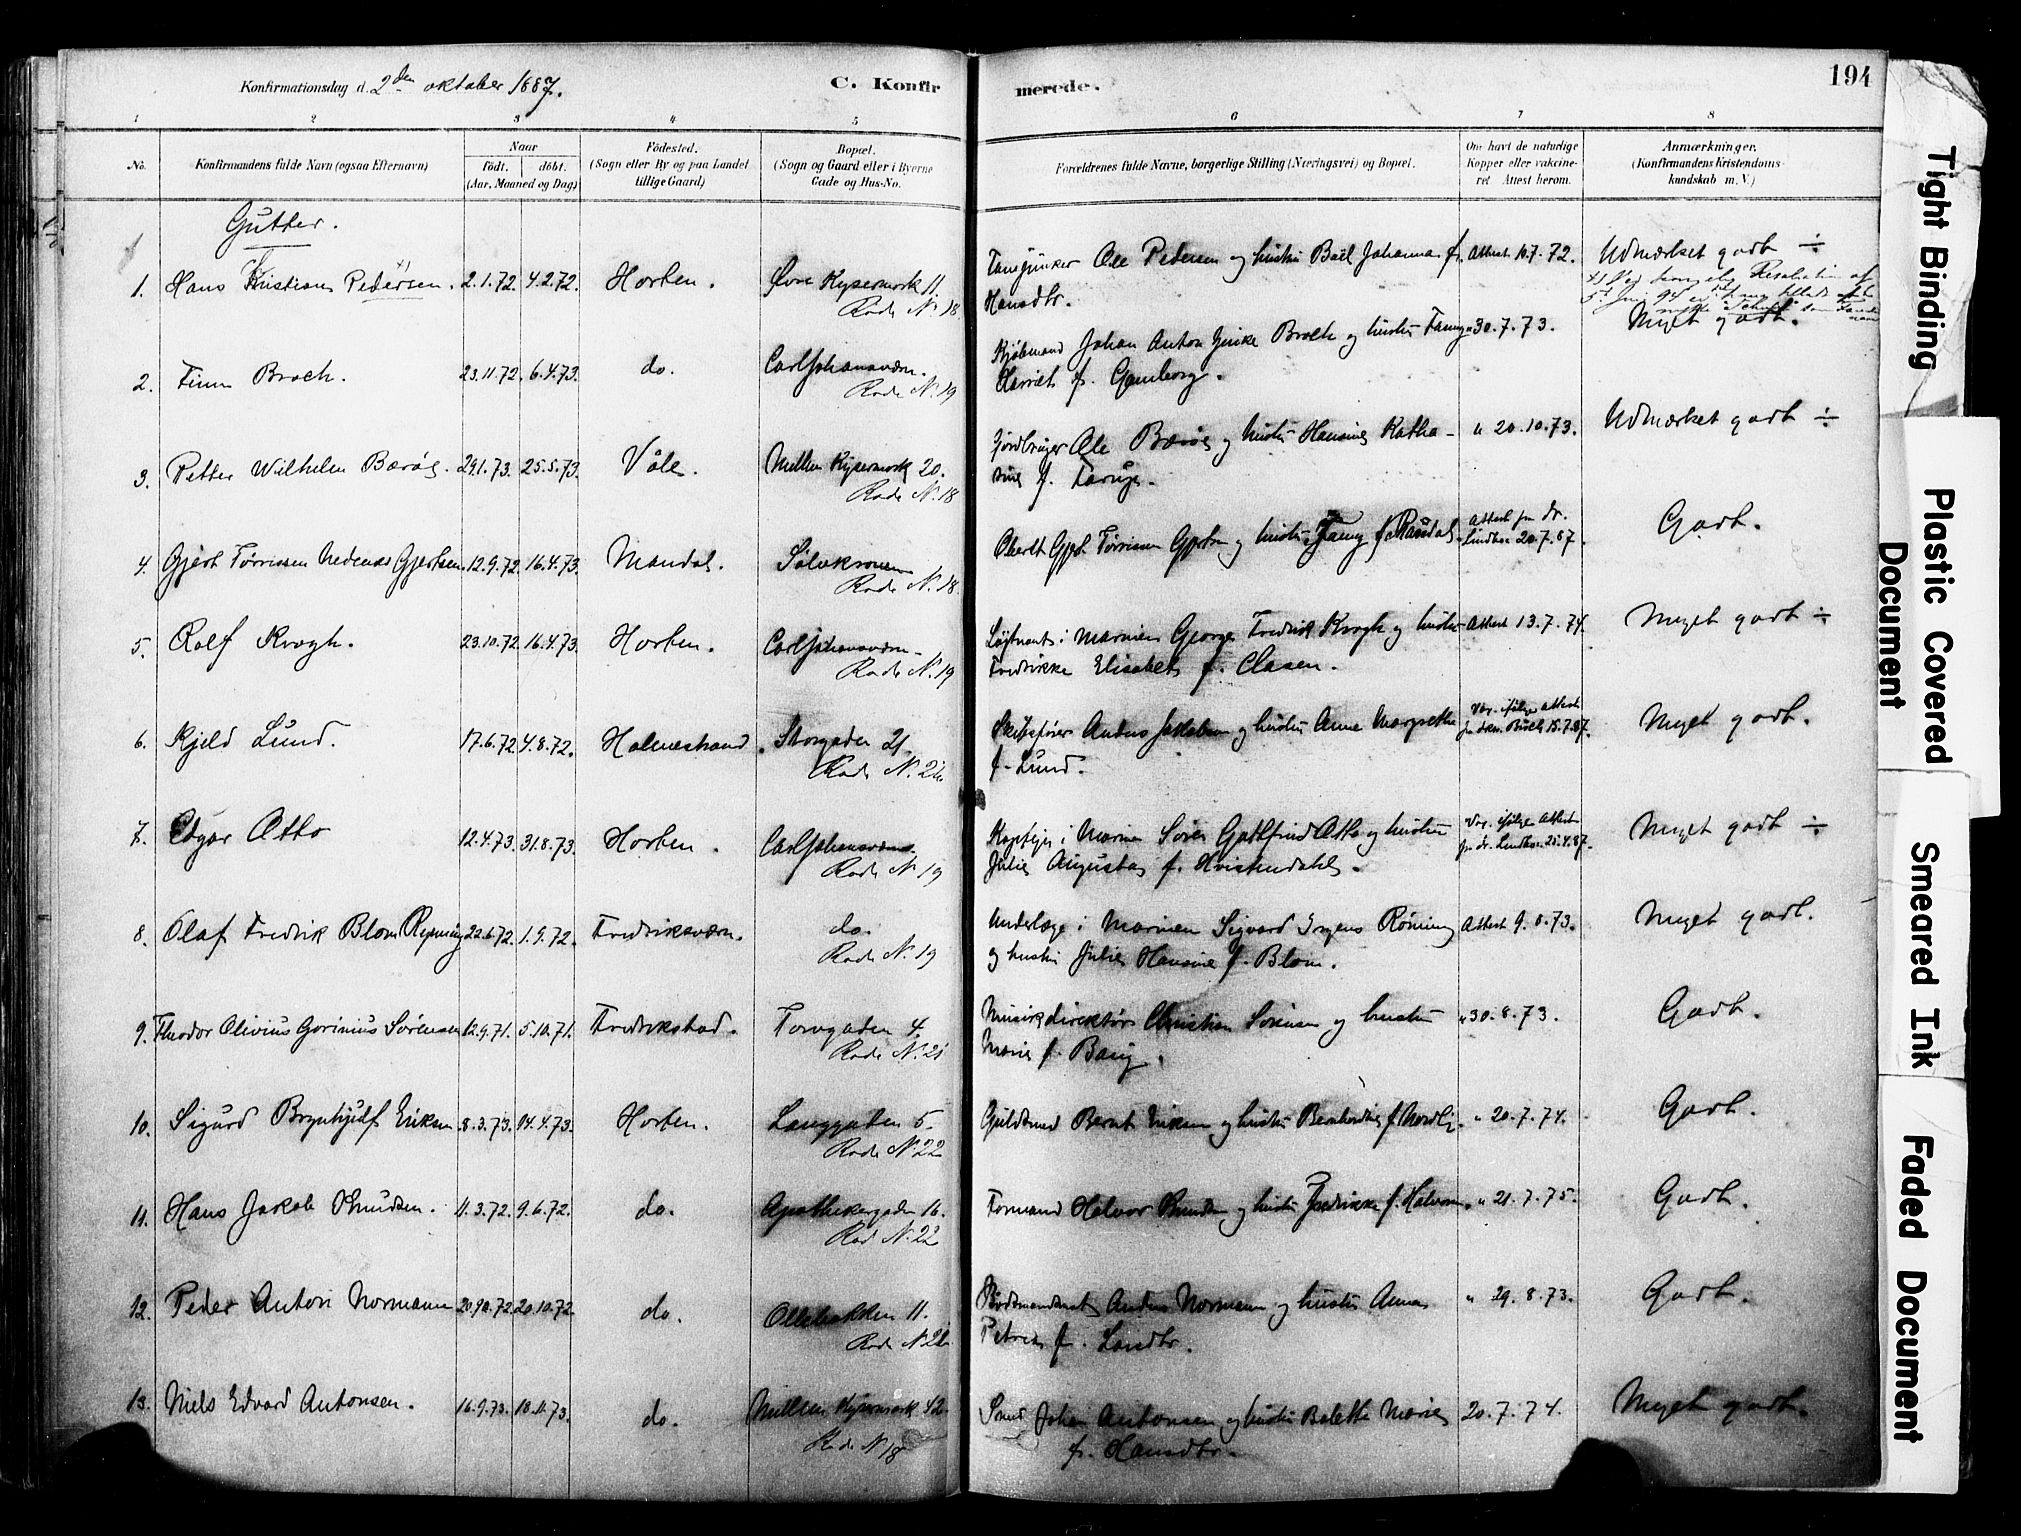 Konfirmationsdag d. 2den oktober 1887.
C. Konfir
merede.
194
1 2 3 4 5 6 7 8
No.
Konfirmandens fulde Navn (ogsaa Efternavn)
Naar
født. døbt.
(Aar, Maaned og Dag)
Fødested.
(Sogn eller By og paa Landet
tillige Gaard)
Bopæl.
(Sogn og Gaard eller i Byerne
Gade og Hus-No.
Forældrenes fulde Navne, borgerlige Stilling (Næringsvei) og Bopæl.
Om havt de naturlige
Kopper eller vakcine-
ret Attest herom.
Anmærkninger.
(Konfirmandens Kristendoms-
kundskab m. V.)
Gutter.
1. Hans Kristian Pedersen. 2.1.72. 4.2.72. Horten. Øvre Keysermark 11. Ole Pedersen og hustru Johanna f. Attest 10.7.72. Udmærket godt ÷
Rode N. 18
Hansdtr.
2. Finn Broch. 23.11.72. 6.4.73. do. Carljohansværn. Kjøbmand Johan Anton Broch og hustru Fanny 30.7.73. Meget godt.
Rode N. 19
Harriet f. Gamborg.
3. Petter Wilhelm Bærøe. 29.1.73. 25.5.73. Våle. Mellem Keysermark 20. Ole Bærøe og hustru Hansine Katha- " 20.10.73. Udmærket godt ÷
Rode N. 18
rine f.
4. Gjert Tørrissen Nedenæs Gjertsen. 12.9.72. 16.4.73. Mandal. Sølvkronen Gjert Tørrissen Gjertsen og hustru Fanny f. Attest fra dr.
Lindboe 20.7.87. Godt.
Rode N. 18
5. Rolf Krogh. 23.10.72. 16.4.73. Horten. Carljohansværn. Løitnant i Marinen George Fredrik Krogh og hustru Attest 13.7.74. Meget godt ÷
Rode N. 19
Fredrikke Elisabeth f. Clasen.
6. Kjeld Lund. 17.6.72. 4.8.72. Holmestrand. Storgaden 21. Skibsfører Anders Jakobsen og hustru Anne Margrethe Meget godt.
f. Lund.
7. Edgar Otto 12.4.73. 31.8.73. Horten. Carljohansværn. Kaptejn i Marinen Otto og hustru Meget godt ÷
Rode N. 19
Julie Augusta f. Hvistendahl.
8. Olaf Fredrik Blom Rønning 22.6.72. 1.9.72. Fredriksværn. do. Underlæge i Marinen Sigvard Rønning Attest 9.8.73. Meget godt.
Rode N. 19
og hustru Julie Hansine f. Blom.
9. Theodor Olivius Gorinius Sørensen 12.9.71. 5.10.71. Fredrikstad. Torvgaden 4. Musikdirektør Christian Sørensen og hustru " 30.8.73. Godt.
Rode N. 21
Marie f. Bang.
10. Sigurd Brynhjulf Eriksen 8.3.73. 14.4.73. Horten. Langgaden 5. Guldsmed Bernt Eriksen og hustru Bernhardine f. Nordli. " 20.7.74. Godt.
Rode N. 22
11. Hans Jakob Knudsen. 11.3.72. 9.6.72. do. Apothekergaden 16. Formand Halvor Knudsen og hustru Fredrikke f. Halvorsen. " 21.7.75. Godt.
Rod N. 22
12. Peder Anton Normann 20.9.72. 20.10.72. do. Ollebakken 11. Anders Normann og hustru Anna " 29.8.73. Godt.
Petrea f. Larsdtr.
13. Niels Edvard Antonsen. 16.9.73. 18.11.73. do. Mellem Keysermark 42. Smed Johan Antonsen og hustru Belette Marie 20.7.74. Meget godt.
Rode N 18
f. Hansdtr.
Tight Binding
Plastic Covered
Document
Smeared Ink
Faded Document